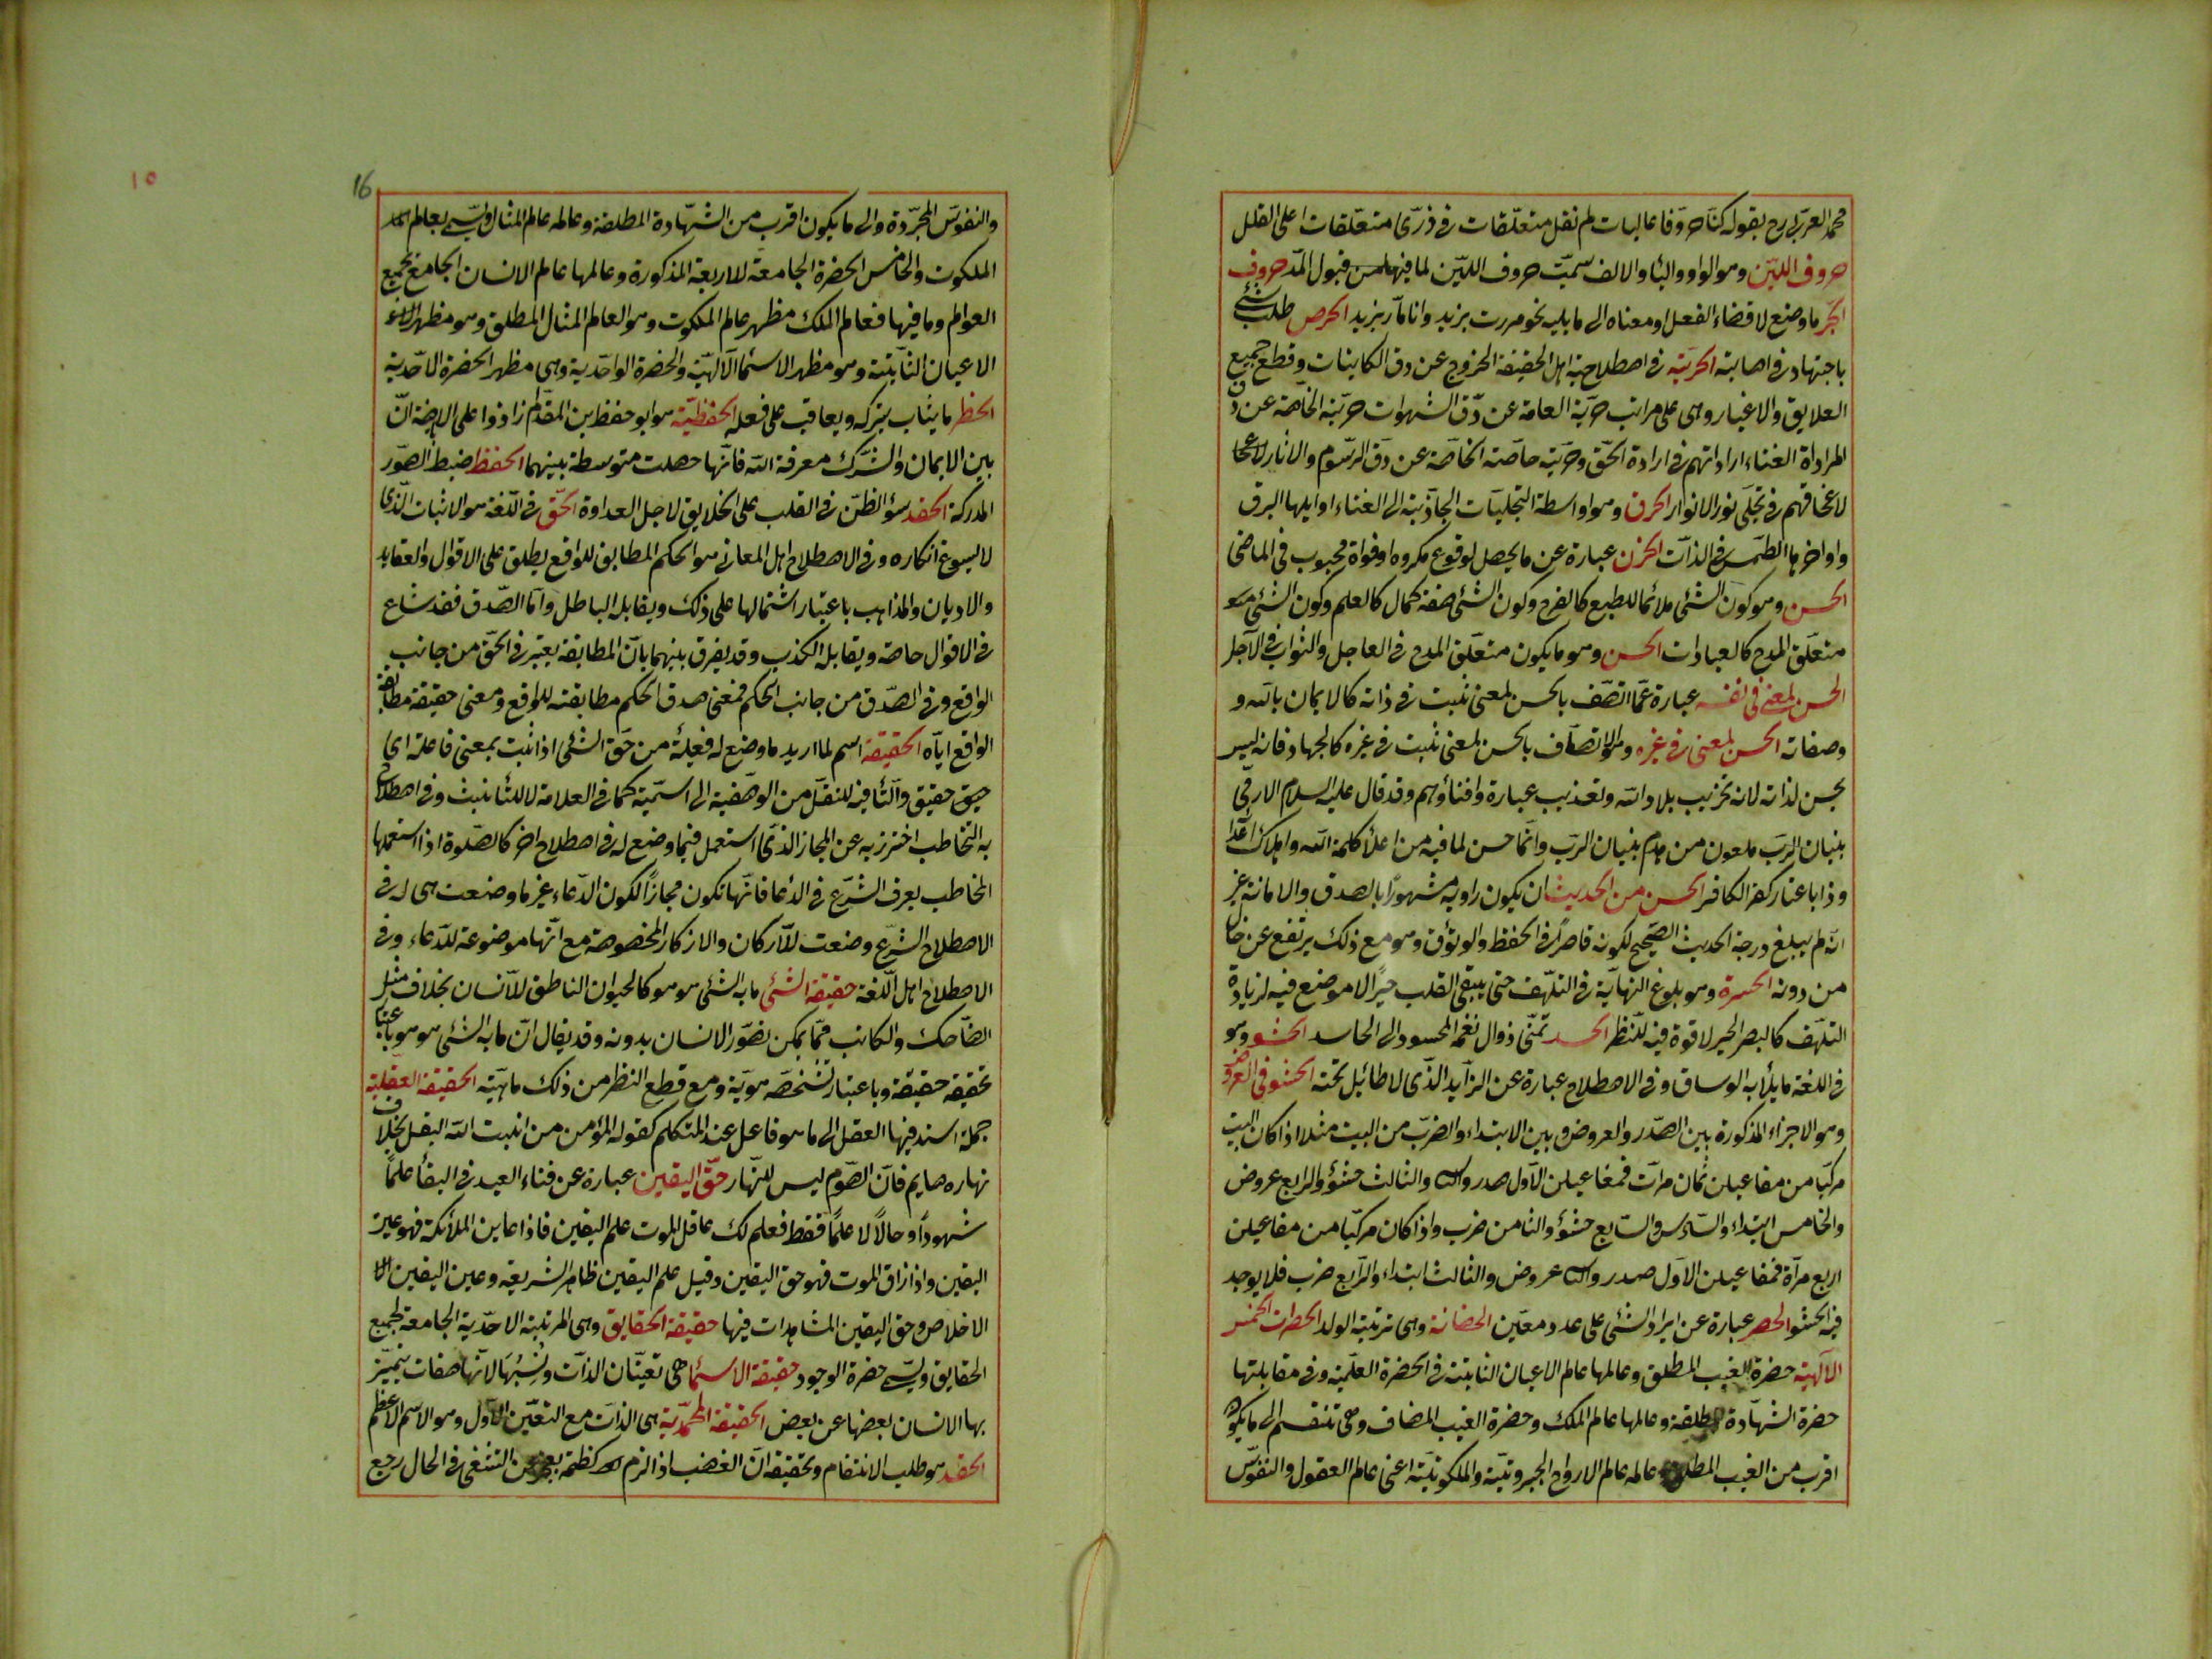 محمد العربي رح بقوله كنا حروفا عاليات لم نقل متعلقات في ذرى متعلقات اعلى القلل
حروف اللين وهو الواو والياء والالف سميت حروف اللين لما فيها من قبول المد حروف
الجر ما وضع لاقضاء الفعل او معناه الى ما يليه نحو مررت بزيد وانا مار بزيد الحرص طلب شئ
باجتهاد في اصابته الحرية في اصطلاح اهل الحقيقة الخروج عن رق الكاينات وقطع جميع
العلايق والاغيار وهي على مراتب حرية العامة عن رق الشهوات حرية الخاصة عن رق
المراداة الفناء اراداتهم في ارادة الحق وحرية خاصة الخاصة عن رق الرسوم والاثار
لانمحاقهم في تجلى نور الانوار الحرق وهو اواسطة التجليات الجاذبة الى الفناء اوايلها البرق
واواخرها الطمس في الذات الحزن عبارة عن ما يحصل لوقوع مكروه او فواة محبوب في الماضى
الحسن وهو كون الشئ ملائما للطبع كالفرح وكون الشئ صفة كمال كالعلم وكون الشئ
متعلق المدح كالعبادات الحسن وهو ما يكون متعلق المدح في العاجل والثواب في الآجل
الحسن لمعنى في نفسه عبارة عما اتصف بالحسن لمعنى ثبت في ذاته كالايمان بالله و
وصفاته الحسن لمعنى في غيره وهو الاتصاف بالحسن لمعنى ثبت في غيره كالجهاد فانه ليس
بحسن لذاته لانه تخريب بلاد الله وتعذيب عباره وافناؤهم وقد قال عليه السلام الادمى
بنيان الرب ملعون من هدم بنيان الرب وانما حسن لما فيه من اعلاء كلمة الله واهلاك اعداء
وذا باعتبار كفر الكافر الحسن من الحديث ان يكون راويه مشهورا بالصدق والامانة غير
انه لم يبلغ درجة الحديث الصحيح لكونه قاصرا في الحفظ والوثوق وهو مع ذلك يرتفع عن حال
من دونه الحسرة وهو بلوغ النهاية في التلهف حتى يبقى القلب حسيرا لا موضع فيه لزيادة
التلهف كالبصر الحسير لا قوة فيه للنظر الحسد تمنى زوال نعمة المحسود الى الحاسد الحشو وهو
في اللغة ما يملأ به الوساق وفي الاصطلاح عبارة عن الزايد الذى لا طائل تحته الحشو في العروض
وهو الاجزاء المذكورة بين الصدر والعروض وبين الابتداء والضرب من البيت مثلا اذا كان البيت
مركبا من مفاعيلن ثمان مرات فمفاعيلن الاول صدر والثانى والثالث حشو والرابع عروض
والخامس ابتداء والسادس والسابع حشو والثامن ضرب واذا كان مركبا من مفاعيلن
اربع مرآة فمفاعيلن الاول صدر والثانى عروض والثالث ابتداء والرابع ضرب فلا يوجد
فيه الحشو الحصر عبارة عن ايراد الشئ على عدد معين الحضانة وهي تربية الولد الحضرات الخمس
الآلهية حضرة الغيب المطلق وعالمها عالم الاعيان الثابتة في الحضرة العلمية وفي مقابلتها
حضرة الشهادة المطلقة وعالمها عالم الملك وحضرة الغيب المضاف وهي تنقسم الى ما يكون
اقرب من الغيب المطلق وعالمه عالم الارواح الجبروتية والملكوتية اعنى عالم العقول والنفوس
16
١٥
والنفوس المجردة والى ما يكون اقرب من الشهادة المطلقة وعالمه عالم المثال ويسمى بعالم
الملكوت والخامس الحضرة الجامعة للاربعة المذكورة وعالمها عالم الانسان الجامع بجميع
العوالم وما فيها فعالم الملك مظهر عالم الملكوت وهو العالم المثال المطلق وهو مظهر
الاعيان الثابتة وهو مظهر الاسماء الآلهية والحضرة الواحدية وهي مظهر الحضرة الاحدية
الحظر ما يثاب بتركه ويعاقب على فعله الحفظية هو ابو حفظ بن المقدام زادوا على الاباضة ان
بين الايمان والشرك معرفة الله فانها خصلت متوسطة بينهما الحفظ ضبط الصور
المدركة الحقد سؤ الظن في القلب على الخلايق لاجل العداوة الحق في اللغة هو الاثبات الذى
لا يسوغ انكاره وفي الاصطلاح اهل المعانى هو الحكم المطابق للواقع يطلق على الاقوال والعقايد
والاديان والمذاهب باعتبار اشتمالها على ذلك ويقابله الباطل واما الصدق فقد شاع
في الاقوال خاصة ويقابله الكذب وقد يفرق بينهما بان المطابقة يعتبر في الحق من جانب
الواقع وفي الصدق من جانب الحكم فمعنى صدق الحكم مطابقته للواقع ومعنى حقيقة مطابقة
الواقع اياه الحقيقة اسم لما اريد ما وضع له فعيلة من حق الشئ اذا ثبت بمعنى فاعلة اى
حق حقيق والتأ فيه للنقل من الوصفية الى اسمية كما في العلامة لا للتأنيث وفي اصطلاح
به التخاطب احترز به عن المجاز الذى استعمل فيما وضع له في اصطلاح اخر كالصلوة اذا استعملها
المخاطب بعرف الشرع في الدعا فانها تكون مجازا لكون الدعاء غير ما وضعت هي له في
الاصطلاح الشرع وضعت للاركان والاذكار المخصوصة مع انها موضوعة للدعاء وفي
الاصطلاح اهل اللغة حقيقة الشئ ما به الشئ هو هو كالحيوان الناطق للانسان بخلاف مثل
الضاحك والكاتب مما يمكن تصور الانسان بدونه وقد يقال ان ما به الشئ هو هو باعتبار
تحققه حقيقة وباعتبار تشخصه هوية ومع قطع النظر من ذلك ماهية الحقيقة العقلية
جملة اسند فيها العقل الى ما هو فاعل عند المتكلم كقوله المؤمن من انبت الله البقل بخلاف
نهاره صايم فان الصوم ليس للنهار حق اليقين عبارة عن فناء العبد في البقأ علما
شهودا وحالا لا علما فقط فعلم لك عاقل الموت علم اليقين فاذا عاين الملائكة فهو عين
اليقين واذا ذاق الموت فهو حق اليقين وقيل علم اليقين ظاهر الشريعة وعين اليقين
الاخلاص وحق اليقين المشاهدات فيها حقيقة الحقايق وهي المرتبة الاحدية الجامعة لجميع
الحقايق ويسمى حضرة الوجود حقيقة الاسماء هي تعينان الذات ونسبها لانها صفات يتميز
بها الانسان بعضها عن بعض الحقيقة المحمدية هي الذات مع التعين الاول وهو الاسم الاعظم
الحقد هو طلب الانتقام وتحقيقه ان الغضب اذا لزم كظمه بعجز عن التشفى في الحال رجع